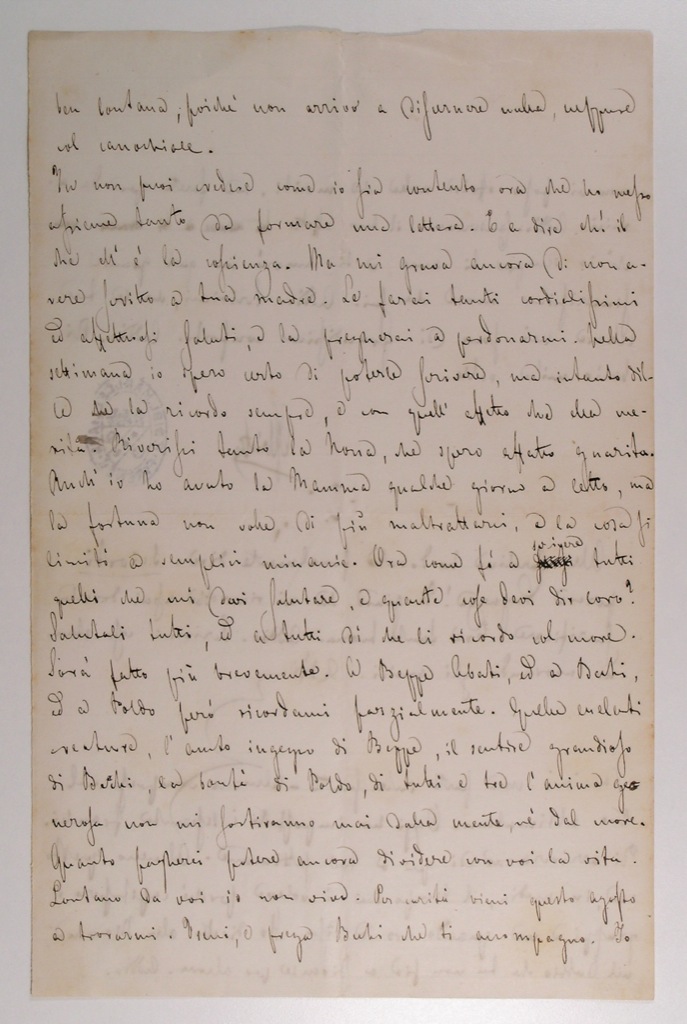 ben lontana, poiché non arrivo a discernere nulla, neppure
col canochiale.
Tu non puoi credere come io sia contento ora che ho messo
assieme tanto da formare una lettera. E a dire ch'è il
che ch' è la coscienza. Ma mi grava ancora di non a-
vere scritto a tua madre. Le farai tanti cordialissimi
ed affettuosi saluti, e la pregherai a perdonarmi. Nella
settimana io spero certo di poterle scrivere, ma intanto dil-
le che la ricordo sempre, e con quell' affetto che ella me-
rita. Riverisci tanto la Nonna, che spero affatto guarita.
Anch' io ho avuto la Mamma qualche giorno a letto, ma
la fortuna non volle di più maltrattarci, e la cosa si
limitò a semplici minacie. Ora come fò a scrivere tutti
quelli che mi devi salutare, e quante cose devi dir loro?
Salutali tutti, ed a tutti di che li ricordo col cuore.
Sarà fatto più brevemente. A Beppe Abati, ed a Bechi,
ed a Poldo però ricordami parzialmente. Quelle elette
creature, l' acuto ingegno di Beppe, il sentire grandioso
di Bechi, la bontà di Poldo, di tutti e tre l' anima ge-
nerosa non mi sortiranno mai dalla mente, né dal cuore.
Quanto pagherei potere ancora dividere con voi la vita.
Lontano da voi io non vivo. Per carità vieni questo agosto
a trovarmi. Vieni, e prega Bechi che ti accompagni. Io